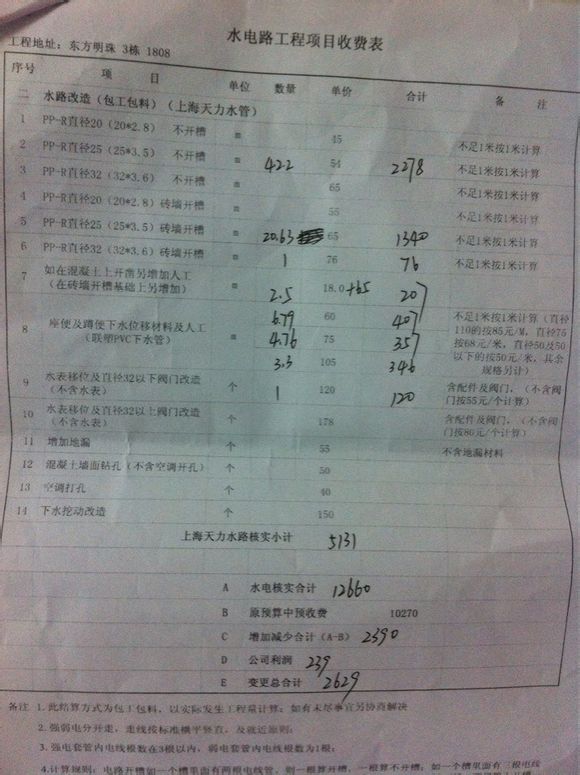 水电路工程项目收费表
工程地址：东方明珠 3栋 1808
序号 项 目 单位 数量 单价 合计 备 注
二 水路改造（包工包料）（上海天力水管）
1 PP-R直径20（20*2.8） 不开槽 m 45 不足1米按1米计算
2 PP-R直径25（25*3.5） 不开槽 m 42.2 54 2278 不足1米按1米计算
3 PP-R直径32（32*3.6） 不开槽 m 65 不足1米按1米计算
4 PP-R直径20（20*2.8）砖墙开槽 m 55 不足1米按1米计算
5 PP-R直径25（25*3.5）砖墙开槽 m 20.63 65 1340 不足1米按1米计算
6 PP-R直径32（32*3.6）砖墙开槽 m 1 76 76 不足1米按1米计算
7 如在混凝土上开凿另增加人工
（在砖墙开槽基础上另增加） m 2.5 18.0+65 207
8 座便及蹲便下水位移材料及人工
（联塑PVC下水管） m
6.79 60 407
4.76 75 357
3.3 105 346
不足1米按1米计算（直径
110的按85元/M，直径75
按68元/米，直径50及50
以下的按50元/米，其余
规格另计）
9 水表移位及直径32以下阀门改造
（不含水表） 个 1 120 120 含配件及阀门，（不含阀
门按55元/个计算）
10 水表移位及直径32以上阀门改造
（不含水表） 个 178 含配件及阀门，（不含阀
门按80元/个计算）
11 增加地漏 个 55 不含地漏材料
12 混凝土墙面钻孔（不含空调开孔） 个 50
13 空调打孔 个 40
14 下水挖动改造 个 150
上海天力水路核实小计 5131
A 水电核实合计 12660
B 原预算中预收费 10270
C 增加减少合计（A-B） 2390
D 公司利润 239
E 变更总合计 2629
备注 1.此结算方式为包工包料，以实际发生工程量计算；如有未尽事宜另协商解决
2.强弱电分开走，走线按标准横平竖直，及就近原则；
3.强电套管内电线根数在3根以内，弱电套管内电线根数为1根；
4.计算规则：电路开槽如一个槽里面有两根电线管，则一根算开槽，一根算不开槽；如一个槽里面有三根电线